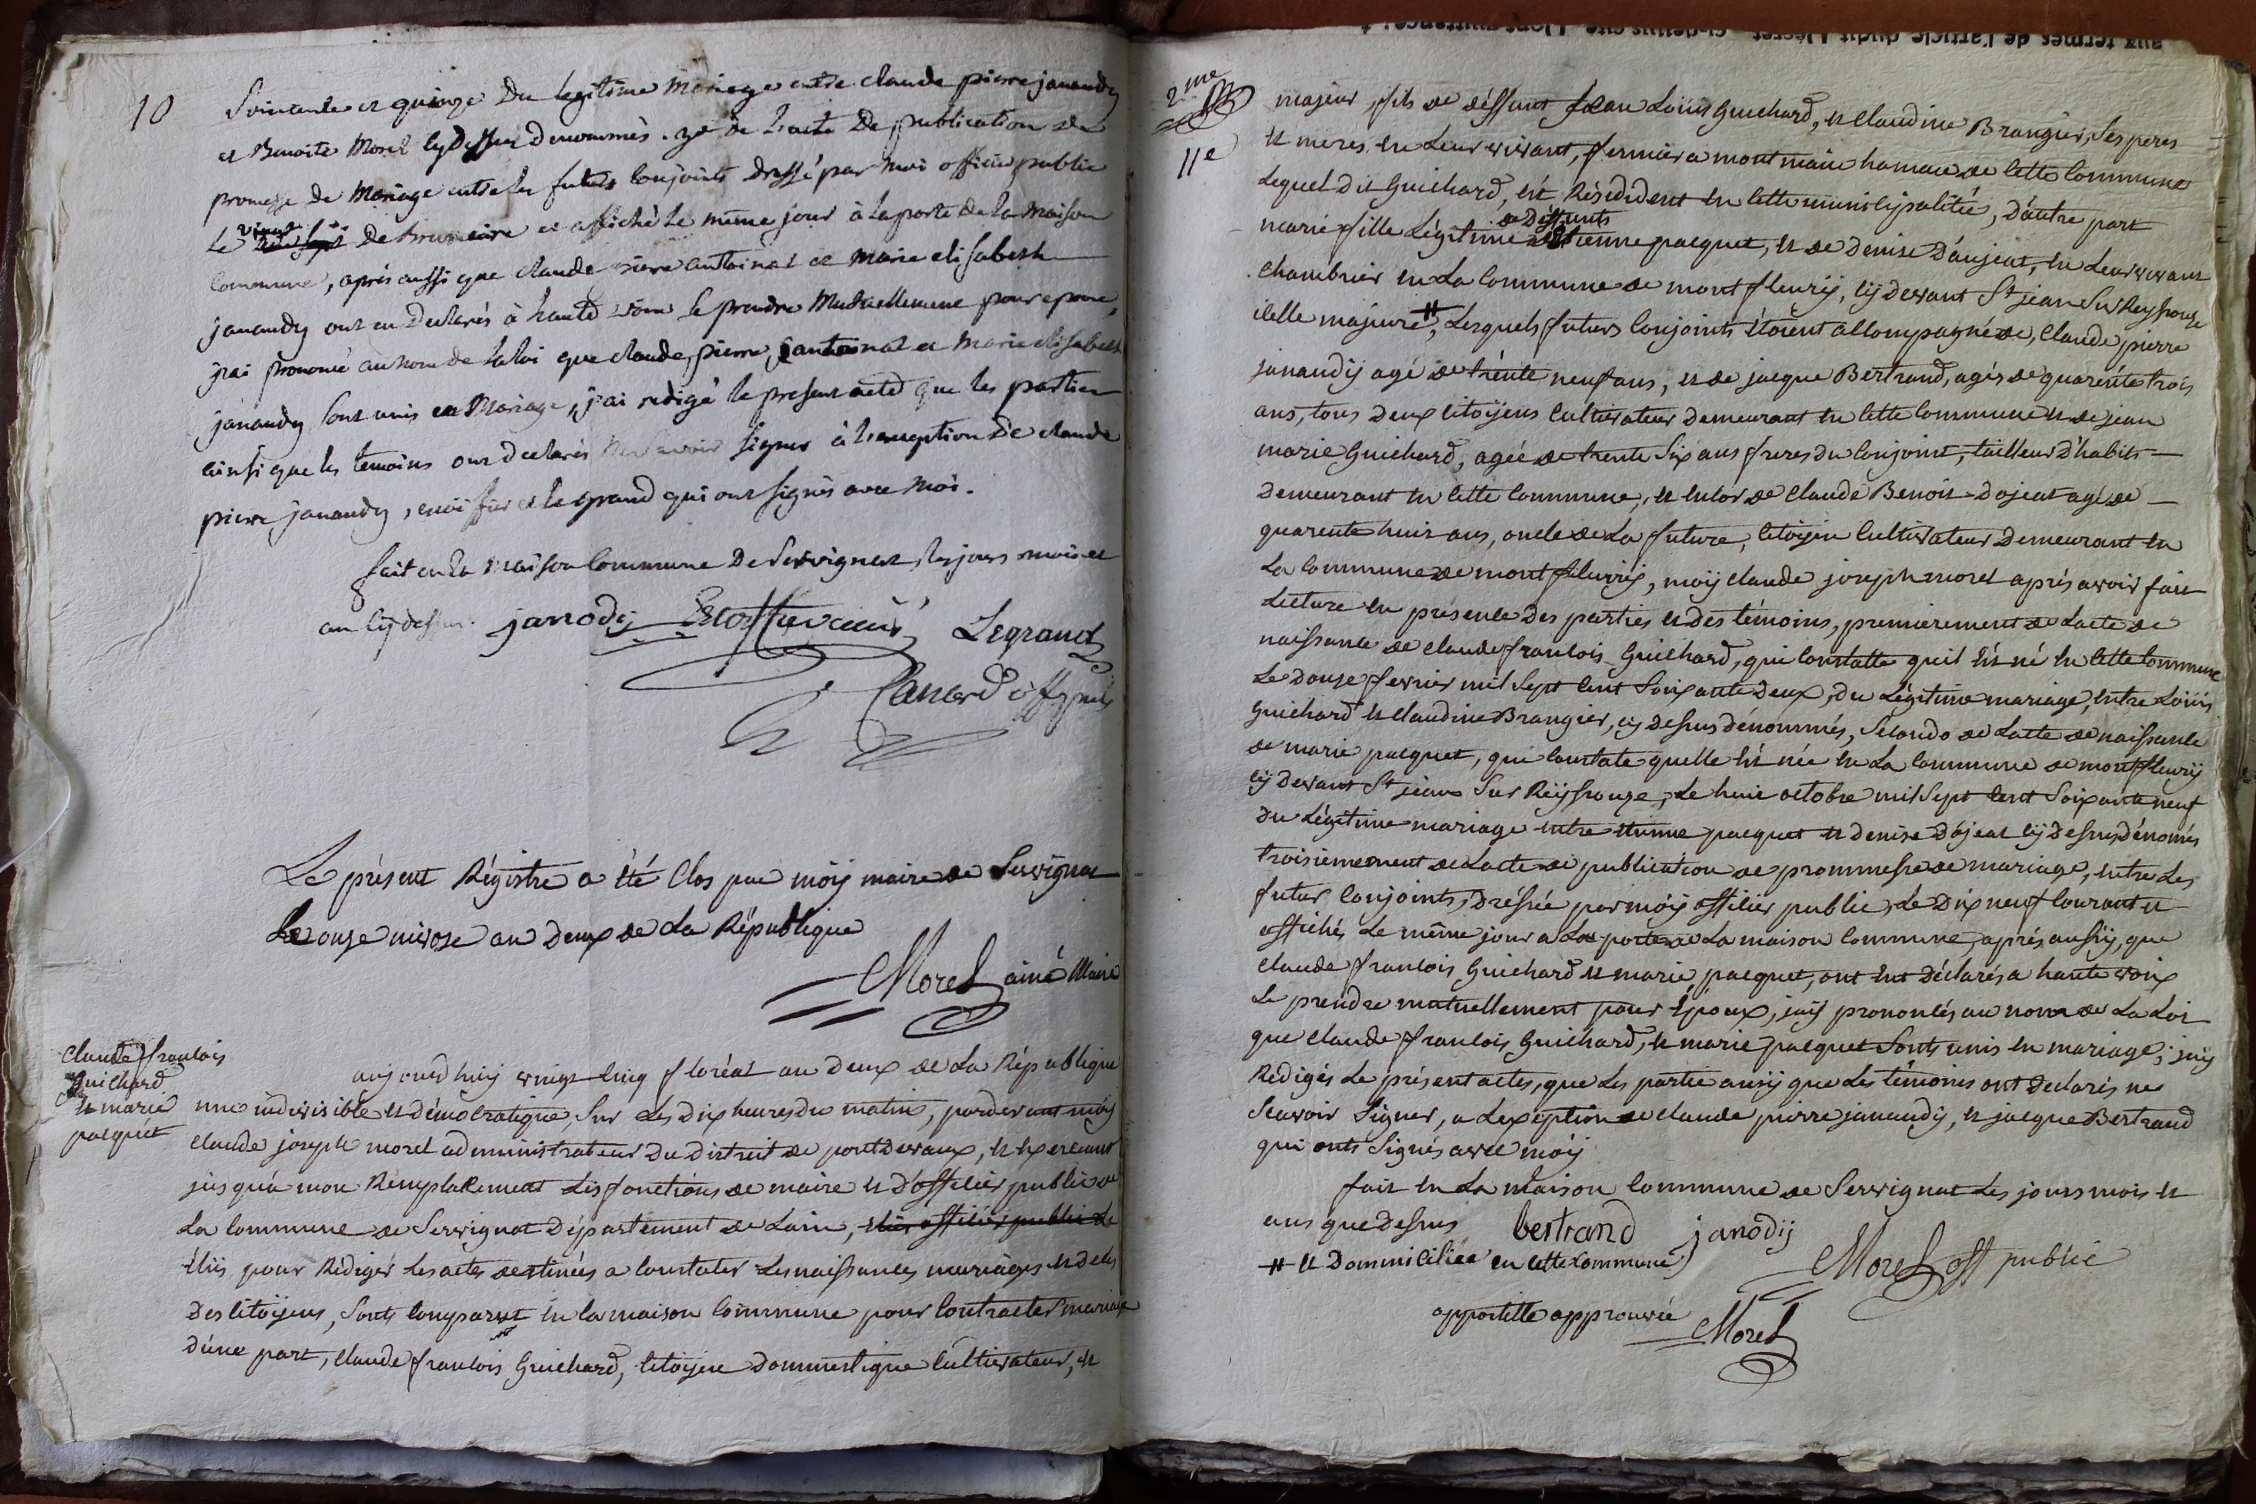 10
Soixante et quinze du legitime Mariage entre claude pierre janaudy
et Benoite Morel cy dessus denommés. 3e de l'acte de publication de
promesse de Mariage entre les futurs conjoints dressé par moi officier public
le vingt de brumaire et affiché le même jour à la porte de la maison
commune, après aussi que claude pierre antoinat et marie elisabeth
janaudy ont eu declarés à haute voix se prendre Mutuellement pour epoux,
j'ai prononcé au nom de la loi que claude, pierre, antoinat et marie elisabeth
janaudy sont unis en Mariage, j'ai redigé le present acte que les parties
ainsi que les temoins ont declarés ne savoir signer à l'exception de claude
pierre janaudy, et le grand qui ont signés avec moi.
fait en la maison commune De Servignat, les jours mois et
an cy dessus. janody Legrand
Canard off public
Le présent Régistre a été Clos par moÿ maire de Servignat
Le onze nivose an deux de la République
Morel ainé Maire
claude francois
guichard
et marie
pacquet
aujourd'huij vingt cinq floréal an deux de la République
une indivisible et démocratique, sur les dix heures du matin, pardevant moÿ
claude joseph morel administrateur du district de pontdevaux, et exercant
jusquà mon Remplacement les fonctions de maire et d'officier public de
la commune de Servignat département de Lain, officier public de
élüs pour Rediger les actes destinées a constater les naissances mariages et deces
des citoÿens, sont comparut en la maison commune pour contracter mariage
d'une part, claude francois Guichard, citoÿen dommestique cultivateur, et
2me
11e
majeur, fils de déffunt Jean Loüis Guichard, et claudine Brangier, ses peres
et meres en leur vivant, fermier a montmain hamau de cette commune
lequel dit Guichard, est Résidident en cette municipalitée, d'autre part
marie fille légitime de deffunts etienne pacquet, et de denise d'aujeat, en leur vivant
chambrier en la commune de mont fleurÿ, cÿ devant St jean sur Reyssouze
icelle majeure #, lesquels futurs conjoints étoient accompagné de, claude pierre
janaudÿ agé de trénte neuf ans, et de jacque Bertrand, agés de quarénte trois
ans, tous deux citoÿens cultivateur demeurant en cette commune et de jean
marie Guichard, agée de trente six ans freres du conjoint, tailleur d'habits
demeurant en cette commune, et encor de claude Benoit dojeat agé de
quarente huit ans, oncle de la future, citoÿen cultivateur demeurant en
la commune de mont fleurrÿ, moÿ claude joseph morel aprés avoir fait
lecture en présence des parties et des témoins, premierement de lacte de
naissance de claude francois Guichard, qui constatte quil est né en cette commune
le douze fevrier mil sept cent soixante deux, du Légitime mariage, entre Loüis
Guichard et claudine Brangier, cÿ dessus dénommés, secondo de lacte de naissance
de marie pacquet, qui constate quélle est née en la commune de montfleurÿ
cÿ devant St jean sur Reÿssouze, le huit octobre mil sept cent soixante neuf
du Légitime mariage entre etienne pacquet et denise dójeat cÿ dessus dénomés
troisiemement de lacte de publication de prommesse de mariage, entre les
futur conjoints, dressée par moÿ officier public, le dix neuf courant et
affichés le même jour a la porte de la maison commune, aprés aussÿ, que
claude francois Guichard et marie pacquet, ont eut déclarés a haute voix
se prendre mutuellement pour époux, jaÿ prononcés au nom de la Loi
que claude francois Guichard, et marie pacquet sonts unis en mariage; jaÿ
Rédigés le présent actes, que les partie ausÿ que les témoins ont declarés ne
scavoir signer, a l'exéption de claude pierre janaudÿ, et jacque Bertrand
qui onts signés avec moÿ
fait en la maison commune de Servignat les jours mois et
ans que dessus bertrand janodÿ
# et dommiciliée en cette commune
Morel off public
appostille approuvée
Morel